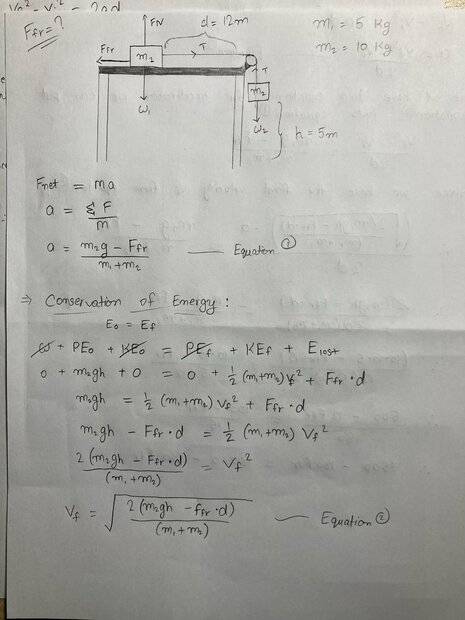 Vo² - Vi² - 2ad
Ffr = ?
FN
d = 12m
m₁ = 5 Kg
m₂ = 10 Kg
Ffr
m₂
T
T
m₂
W₁
W₂
h = 5m
Fnet = ma
a = Σ F / m
a = m₂g - Ffr / m₁+m₂ — Equation ①
⇒ Conservation of Energy :
E₀ = Ef
ω + PE₀ + KE₀ = PEf + KEf + Elost
0 + m₂gh + 0 = 0 + 1/2 (m₁+m₂) Vf² + Ffr · d
m₂gh = 1/2 (m₁+m₂) Vf² + Ffr · d
m₂gh - Ffr · d = 1/2 (m₁+m₂) Vf²
2 (m₂gh - Ffr · d) / (m₁+m₂) = Vf²
Vf = √ 2 (m₂gh - ffr · d) / (m₁+m₂) — Equation ②